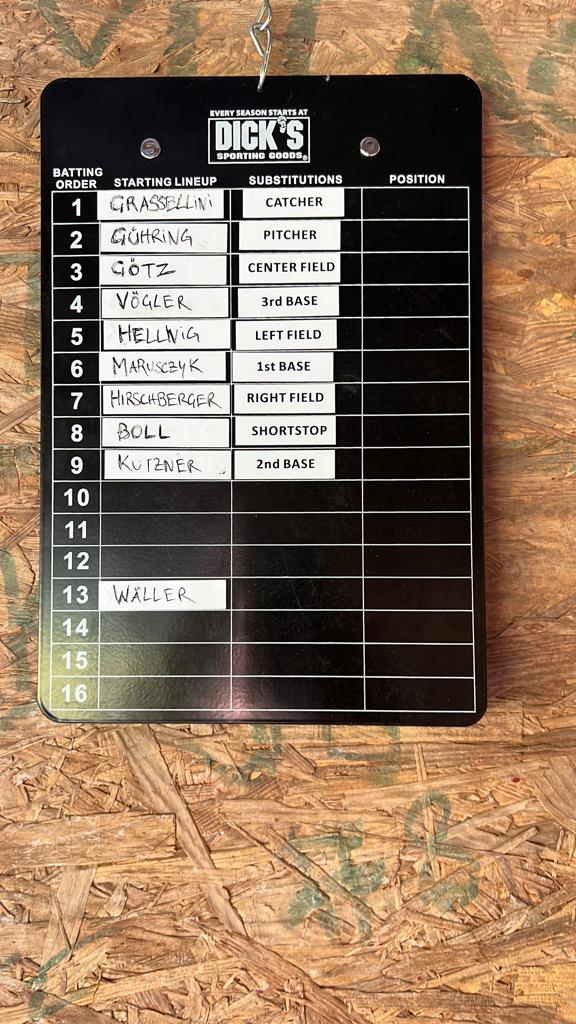 EVERY SEASON STARTS AT
DICK'S
SPORTING GOODS®
BATTING ORDER STARTING LINEUP SUBSTITUTIONS POSITION
1 GRASSELLINI CATCHER
2 GÜHRING PITCHER
3 GÖTZ CENTER FIELD
4 VÖGLER 3rd BASE
5 HELLWIG LEFT FIELD
6 MARUSCZYK 1st BASE
7 HIRSCHBERGER RIGHT FIELD
8 BOLL SHORTSTOP
9 KUTZNER 2nd BASE
10
11
12
13 WÄLLER
14
15
16